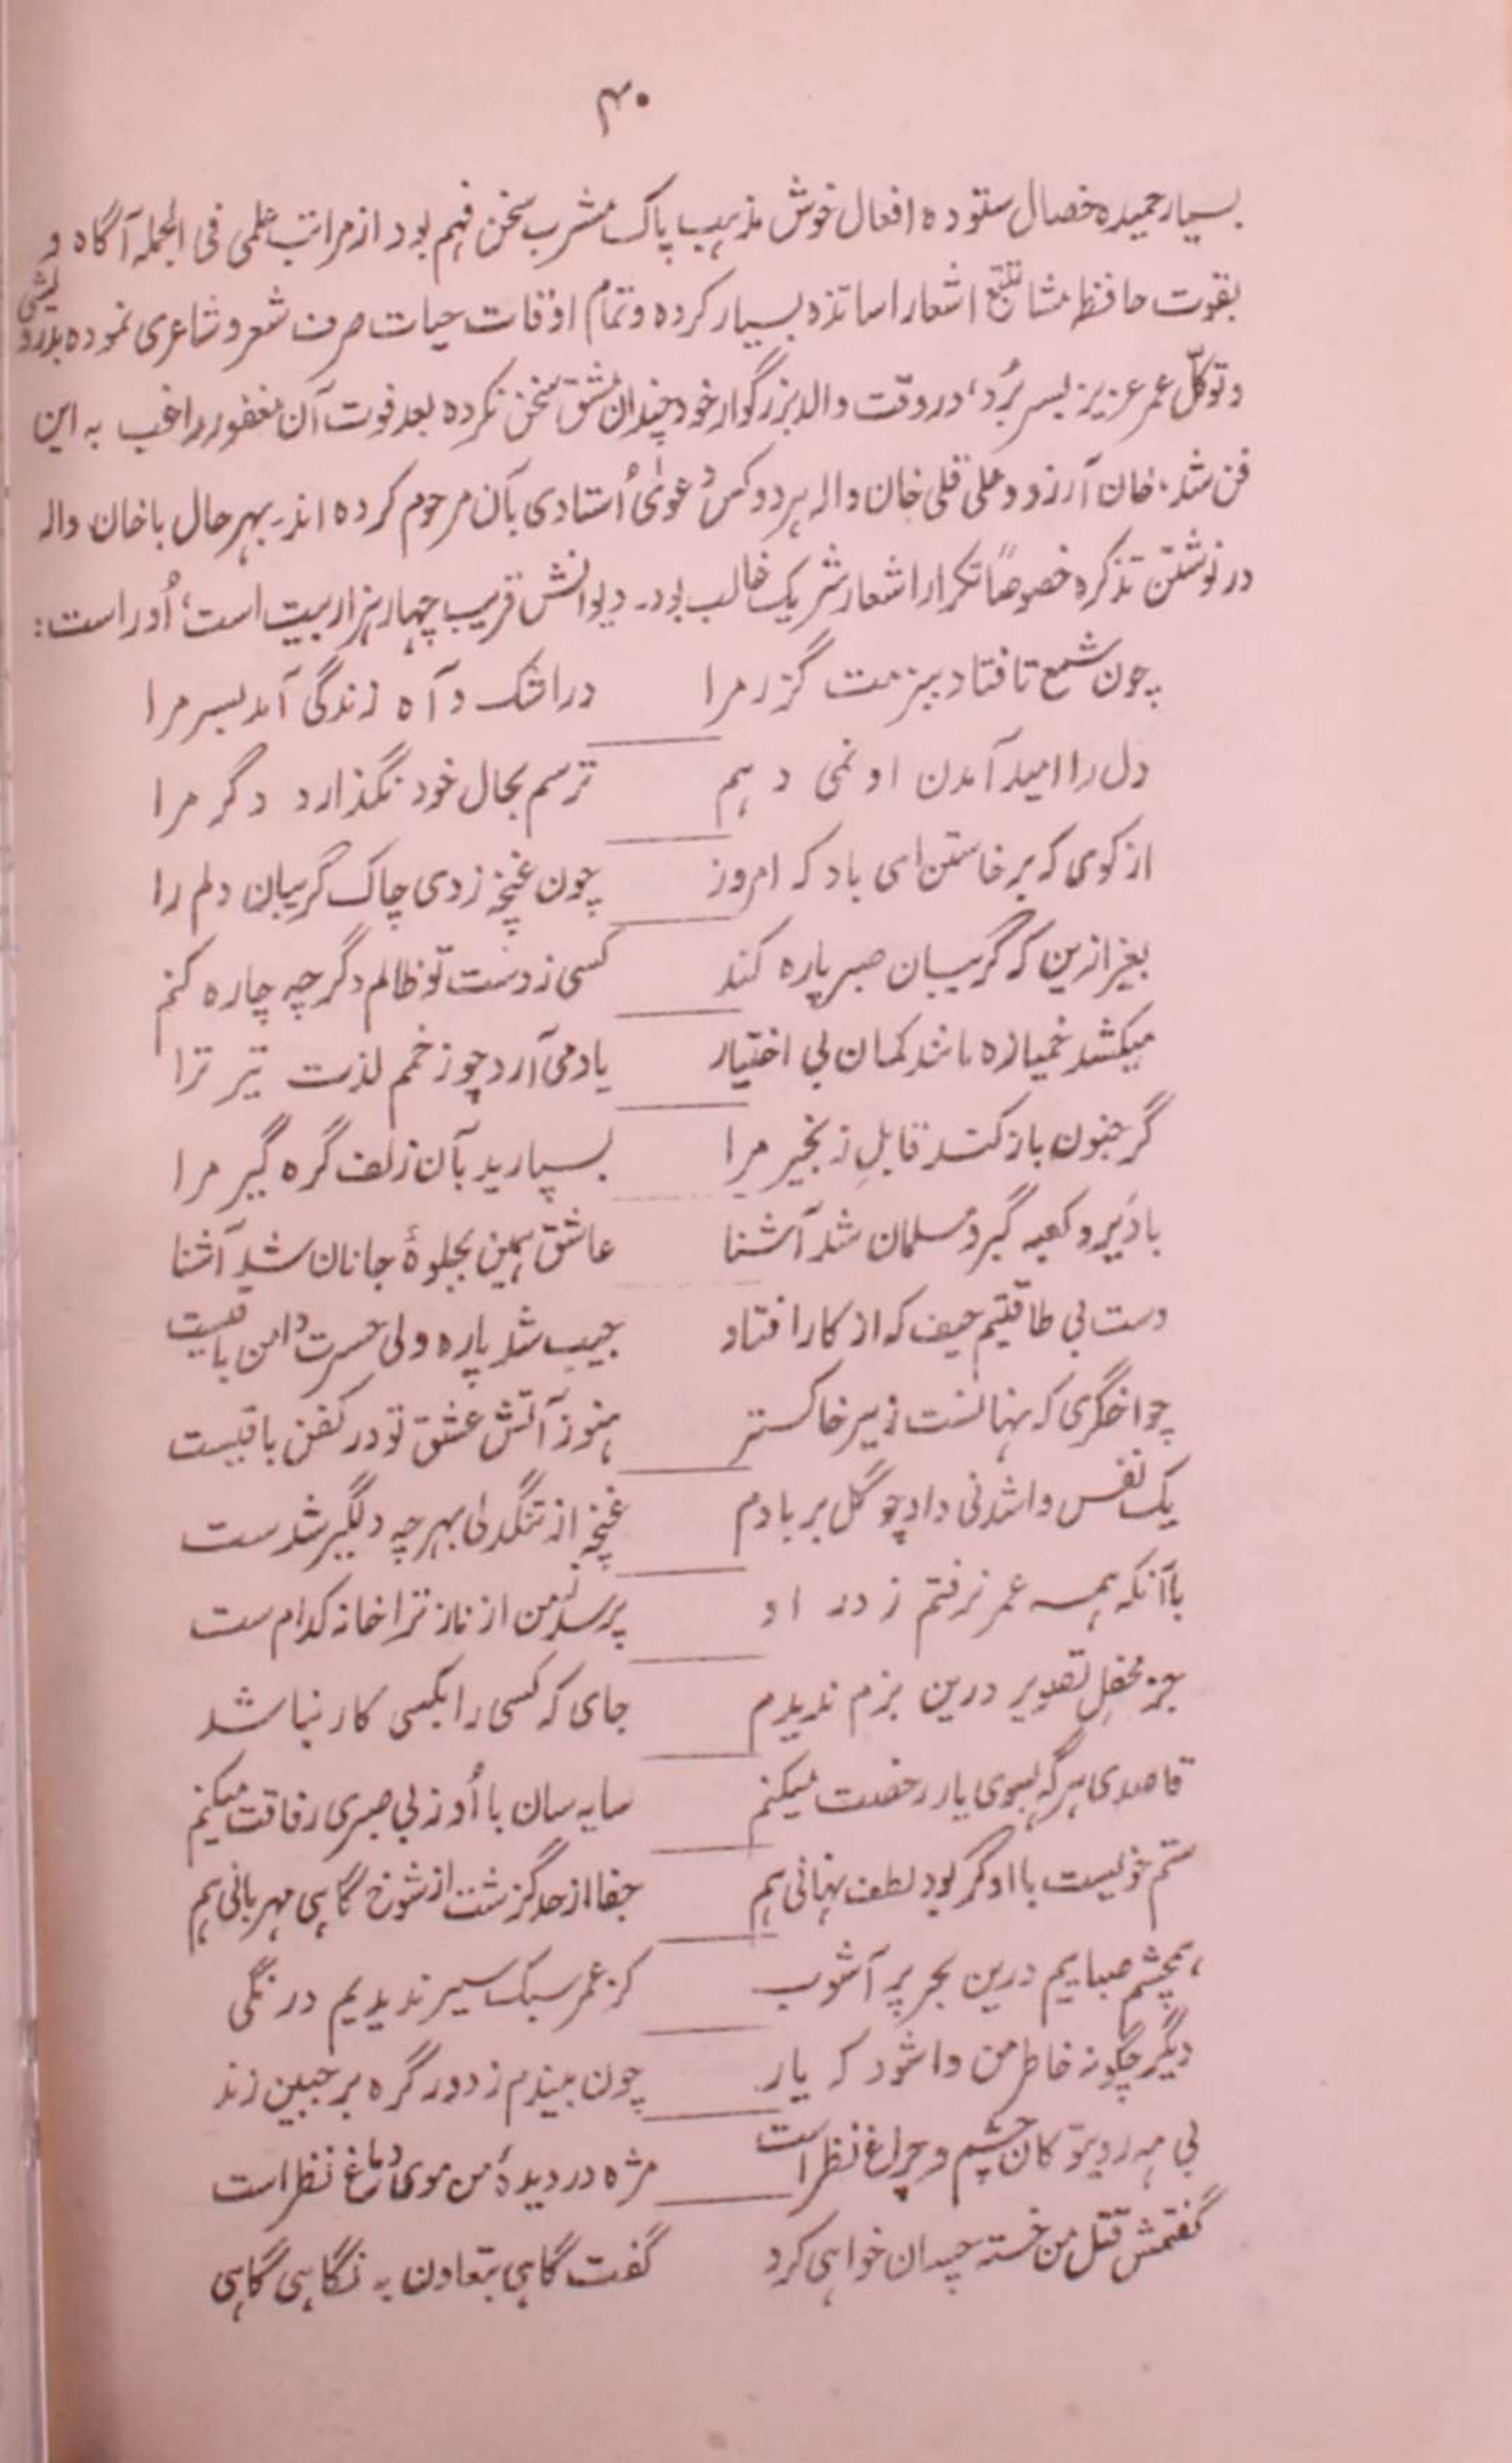 ۴۰
بسیار حمیده خصال ستوده افعال خوش مذہب پاک مشرب سخن فہم بود از مراتب علمی فی الجملہ آگاہ و
بقوت حافظہ مشا تتبع اشعار اساتذہ بسیار کردہ و تمام اوقات حیات صرف شعر و شاعری نمودہ بدرویشی
و توکّل عمر عزیز بسر بُرد، در وقت والد بزرگوار خود چندان مشق سخن نکردہ بعد فوت آن مغفور راغب بہ این
فن شد۔ خان آرزو و علی قلی خان والہ ہر دو کس دعویٰ اُستادی بآن مرحوم کردہ اند۔ بہر حال با خان والہ
در نوشتن تذکرہ خصوصاً تکرار اشعار شریک غالب بود۔ دیوانش قریب چہار ہزار بیت است، اُوراست:
چون شمع تا فتاد ببزمت گزر مرا در اشک و آہ زندگی آمد بسر مرا
دل را امید آمدن او نمی دہم ترسم بحال خود نگذارد دگر مرا
از کوی کہ برخاستن ای باد کہ امروز چون غنچہ زدی چاک گریبان دلم را
بغیر ازین کہ گریبان صبر پارہ کند کسی ز دست تو ظالم دگر چہ چارہ کنم
میکشد خمیازہ مانند کمان بی اختیار یاد می آرد چو زخمم لذت تیر ترا
گر جنون باز کند قابلِ زنجیر مرا بسپارید بآن زلف گرہ گیر مرا
با دَیر و کعبہ گبر و مسلمان شد آشنا عاشق ہمین بجلوۂ جانان شد آشنا
دست بی طاقتیم حیف کہ از کار افتاد جیب شد پارہ ولی حسرت دامن باقیست
چو اخگری کہ نہانست زیر خاکستر ہنوز آتش عشق تو در کفن باقیست
یک نفس واشدنی داد چو گل بر بادم غنچہ از تنگدلی بہر چہ دلگیر شدست
با آنکہ ہمہ عمر نرفتم ز در او پرسد ز من از ناز ترا خانہ کدام ست
بجز محفلِ تصویر درین بزم ندیدم جای کہ کسی را بکسی کار نباشد
قاصدی ہر گہ بسوی یار رخصت میکنم سایہ سان با اُو ز بی صبری رفاقت میکنم
ستم خویست با او گر بود لطف نہانی ہم جفا از حد گزشت از شوخ گاہی مہربانی ہم
ہمچشم حبابیم درین بحر پر آشوب کز عمر سبک سیر ندیدیم درنگی
دیگر چگونہ خاطر من وا شود کہ یار چون بیندم ز دور گرہ بر جبین زند
بی مہ روی تو کان چشم و چراغ نظر است مژہ در دیدۂ من موی دماغ نظر است
گفتمش قتل من خستہ چسان خواہی کرد گفت گاہی بتعاون بہ نگاہی گاہی